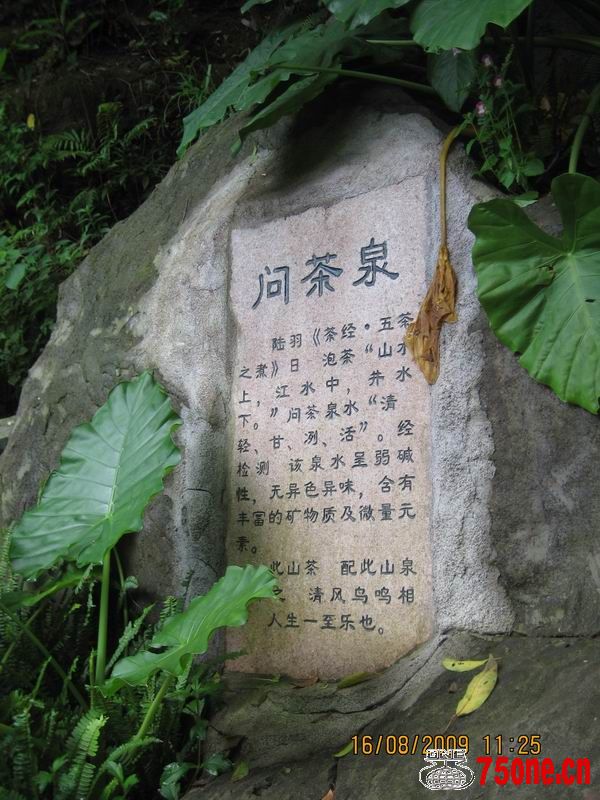 问茶泉
陆羽《茶经·五茶
之煮》日 泡茶“山水
上，江水中，井水
下。”问茶泉水“清
轻、甘、冽、活”。经
检测 该泉水呈弱碱
性，无异色异味，含有
丰富的矿物质及微量元
素。
此山茶 配此山泉
之 清风鸟鸣相
人生一至乐也。
16/08/2009 11:25
75one.cn